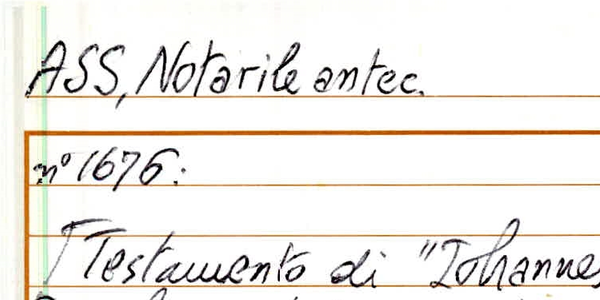 ASS, Notarile antec.
n° 1676:
Testamento di "Iohannes